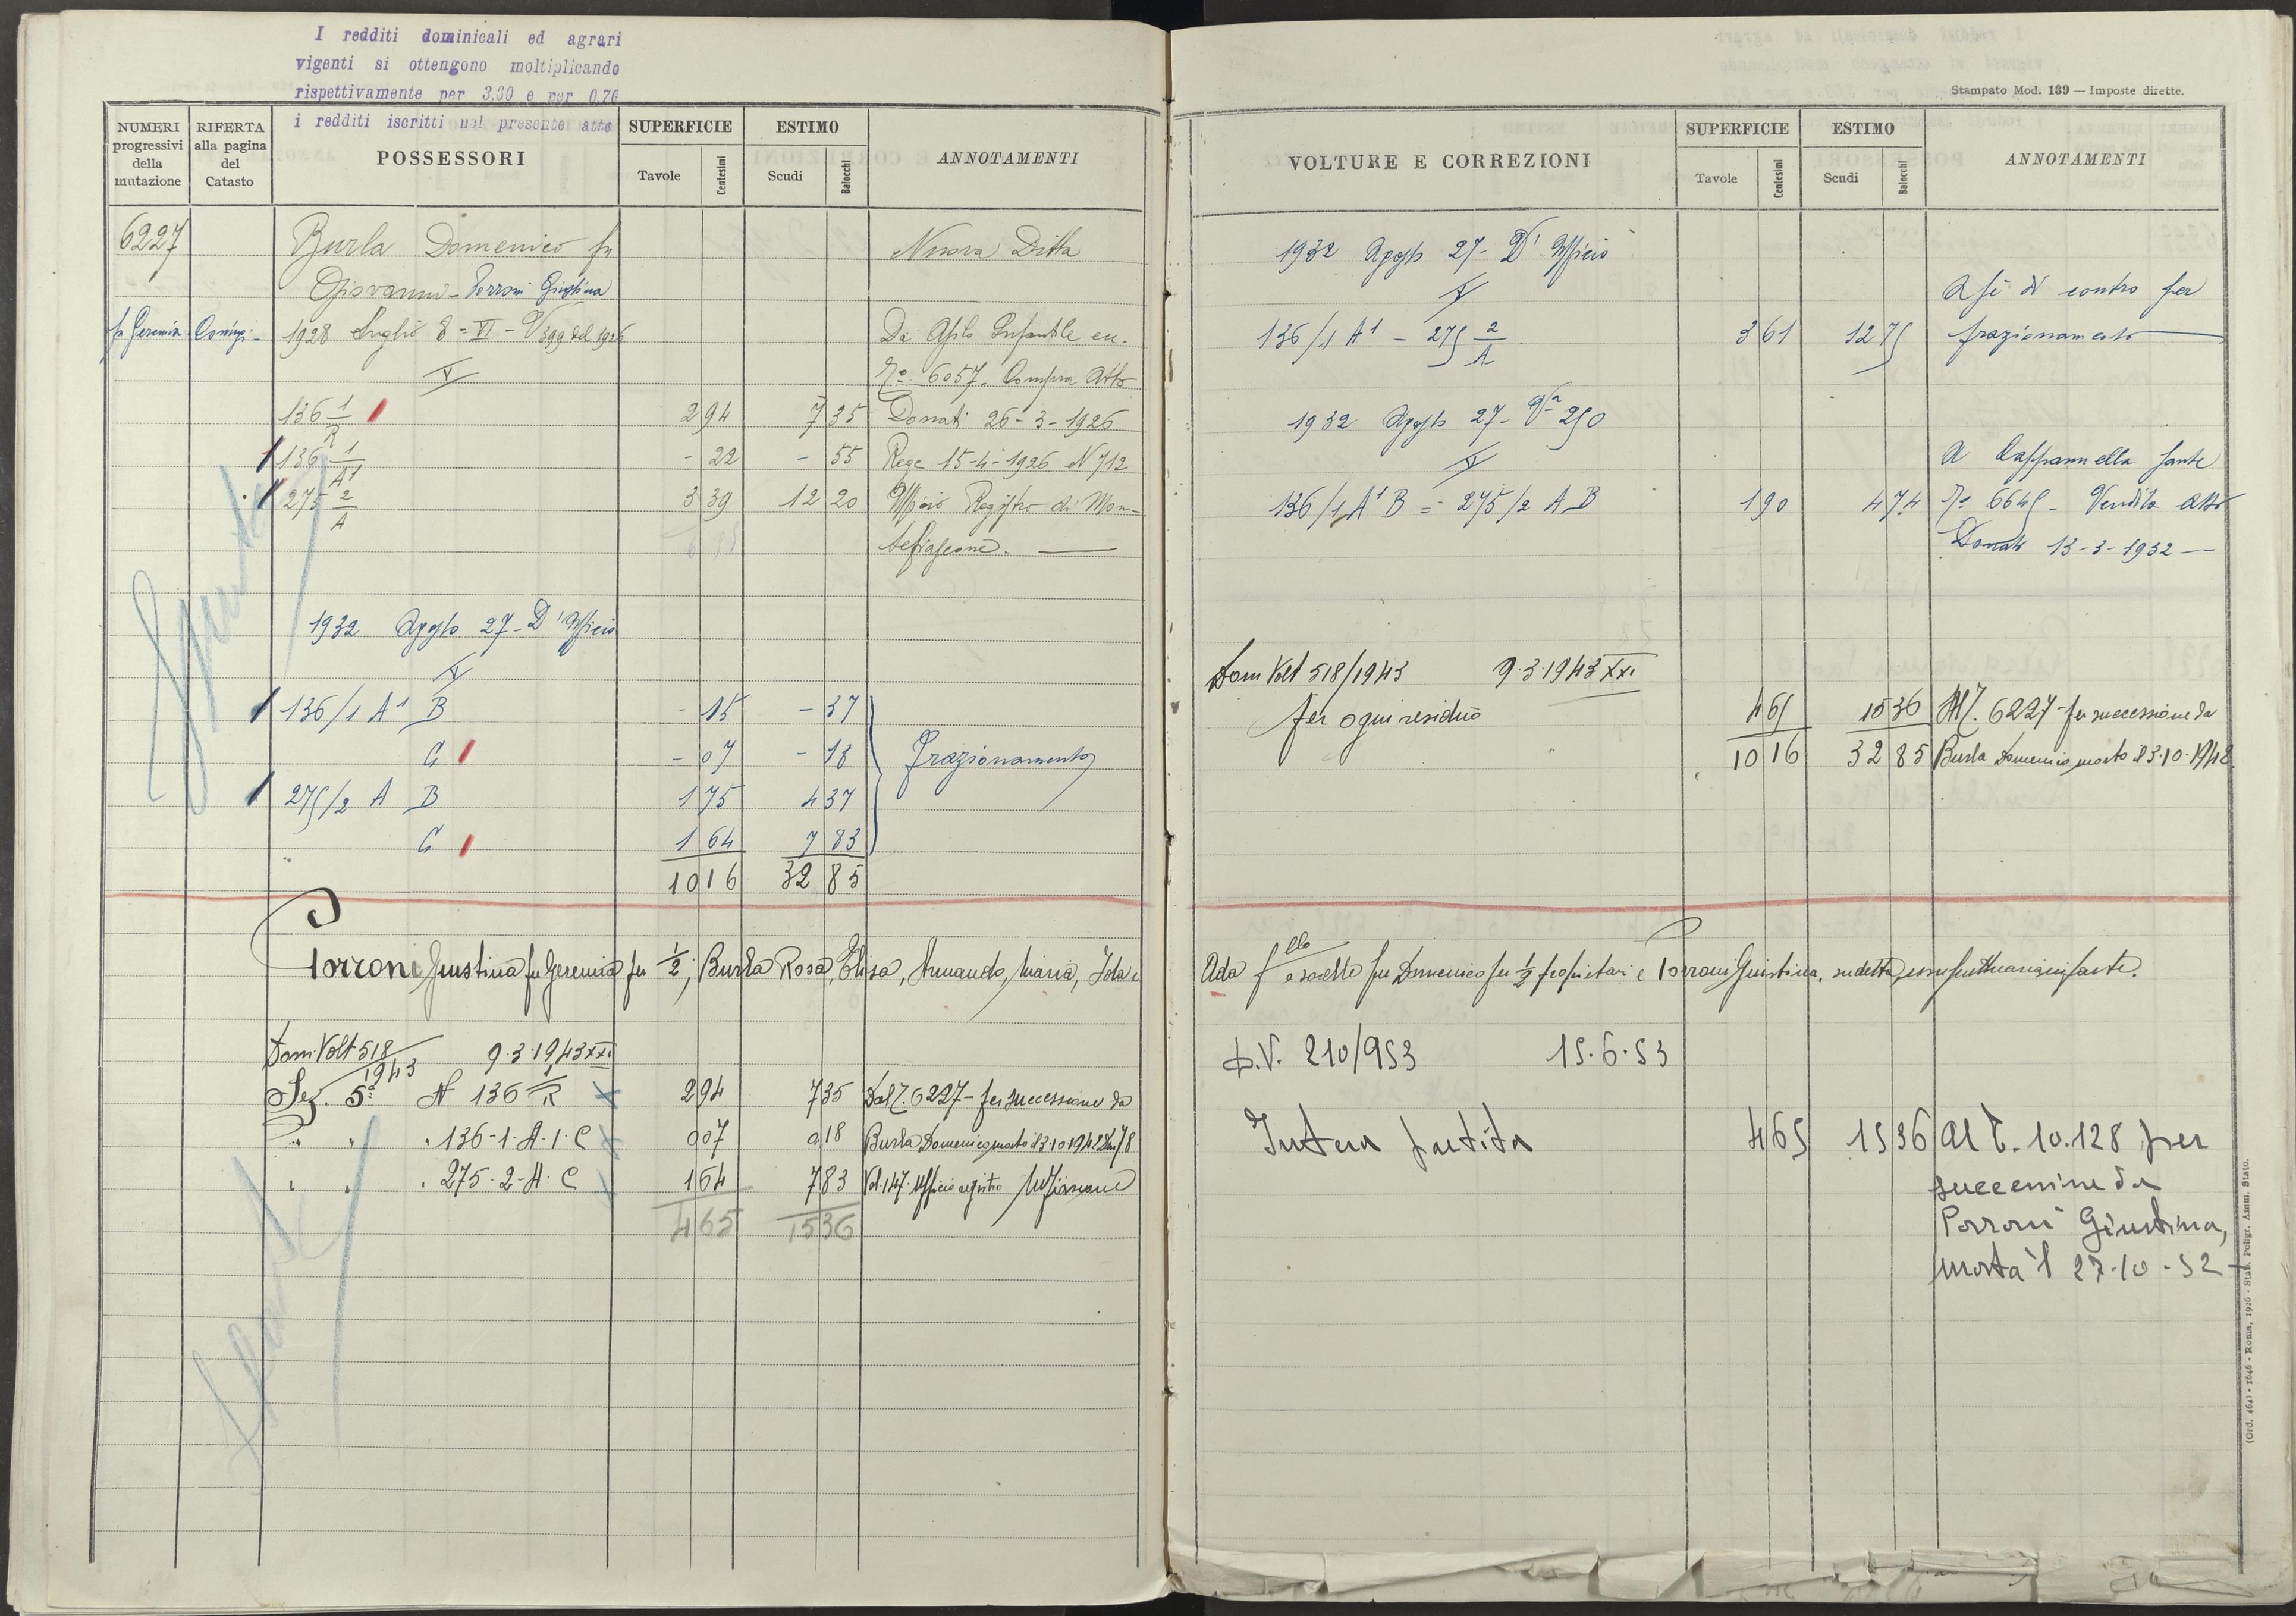 I redditi dominicali ed agrari
vigenti si ottengono moltiplicando
rispettivamente per 3,00 e per 0,70
i redditi iscritti nel presente atto
NUMERI progressivi della mutazione
RIFERTA alla pagina del Catasto
POSSESSORI
SUPERFICIE
Tavole Centesimi
ESTIMO
Scudi Baiocchi
ANNOTAMENTI
6227 Burla Domenico fu Nuova Ditta
Giovanni - Porroni Giustina
fu Geremia Coniugi - 1928 Luglio 8 = VI - V 399 del 1926 Da Asilo Infantile en.
V No 6057. Compra Atto
136 1/R 2 94 7 35 Donati 26-3-1926
136 1/A1 - 22 - 55 Reg. 15-4-1926 N 712
275 2/A 3 39 12 20 Ufficio Registro di Mon-
tefiascone.
1932 Agosto 27 - D'Ufficio
V
136/1 A1 B - 15 - 37
C - 07 - 18 Frazionamento
275/2 A B 1 75 4 37
C 1 64 7 83
10 16 32 85
Porroni Giustina fu Geremia per 1/2, Burla Rosa, Elisa, Armando, Maria, Iola e
Dom Volt 518/1943 9.3.1943 XXI
Sez. 5a N 136 1/R 2 94 7 35 Dal No. 6227 - per successione da
" " . 136-1-A-1-C 0 07 0 18 Burla Domenico morto il 3.10.1942 Den 78
" " . 275-2-A-C 1 64 7 83 Vol. 147 Ufficio registro Mefiascone
4 65 15 36
Stampato Mod. 139 — Imposte dirette.
VOLTURE E CORREZIONI
SUPERFICIE
Tavole Centesimi
ESTIMO
Scudi Baiocchi
ANNOTAMENTI
1932 Agosto 27 - D'Ufficio
V A sè di contro per
136/1 A1 - 275 2/A 3 61 12 75 frazionamento
1932 Agosto 27 - Va 250
V A Cappannella Sante
136/1 A1 B = 275/2 A B 1 90 4 74 No 6645 - Vendita Atto
Donati 13-3-1932
Dom Volt 518/1943 9.3.1943 XXI
per ogni residuo 4 65 15 36 Al No. 6227 - per successione da
10 16 32 85 Burla Domenico morto il 3.10.1942
Ada f.llo e sorelle fu Domenico per 1/2 proprietari e Porroni Giustina, sudetta, usufruttuaria in parte.
D.V. 210/953 15.6.53
Intera partita 4 65 15 36 Al C. 10.128 per
successione da
Porroni Giustina,
morta il 27-10-52
(Ord. 464) - 1646 - Roma, 1926 - Stab. Poligr. Amm. Stato.